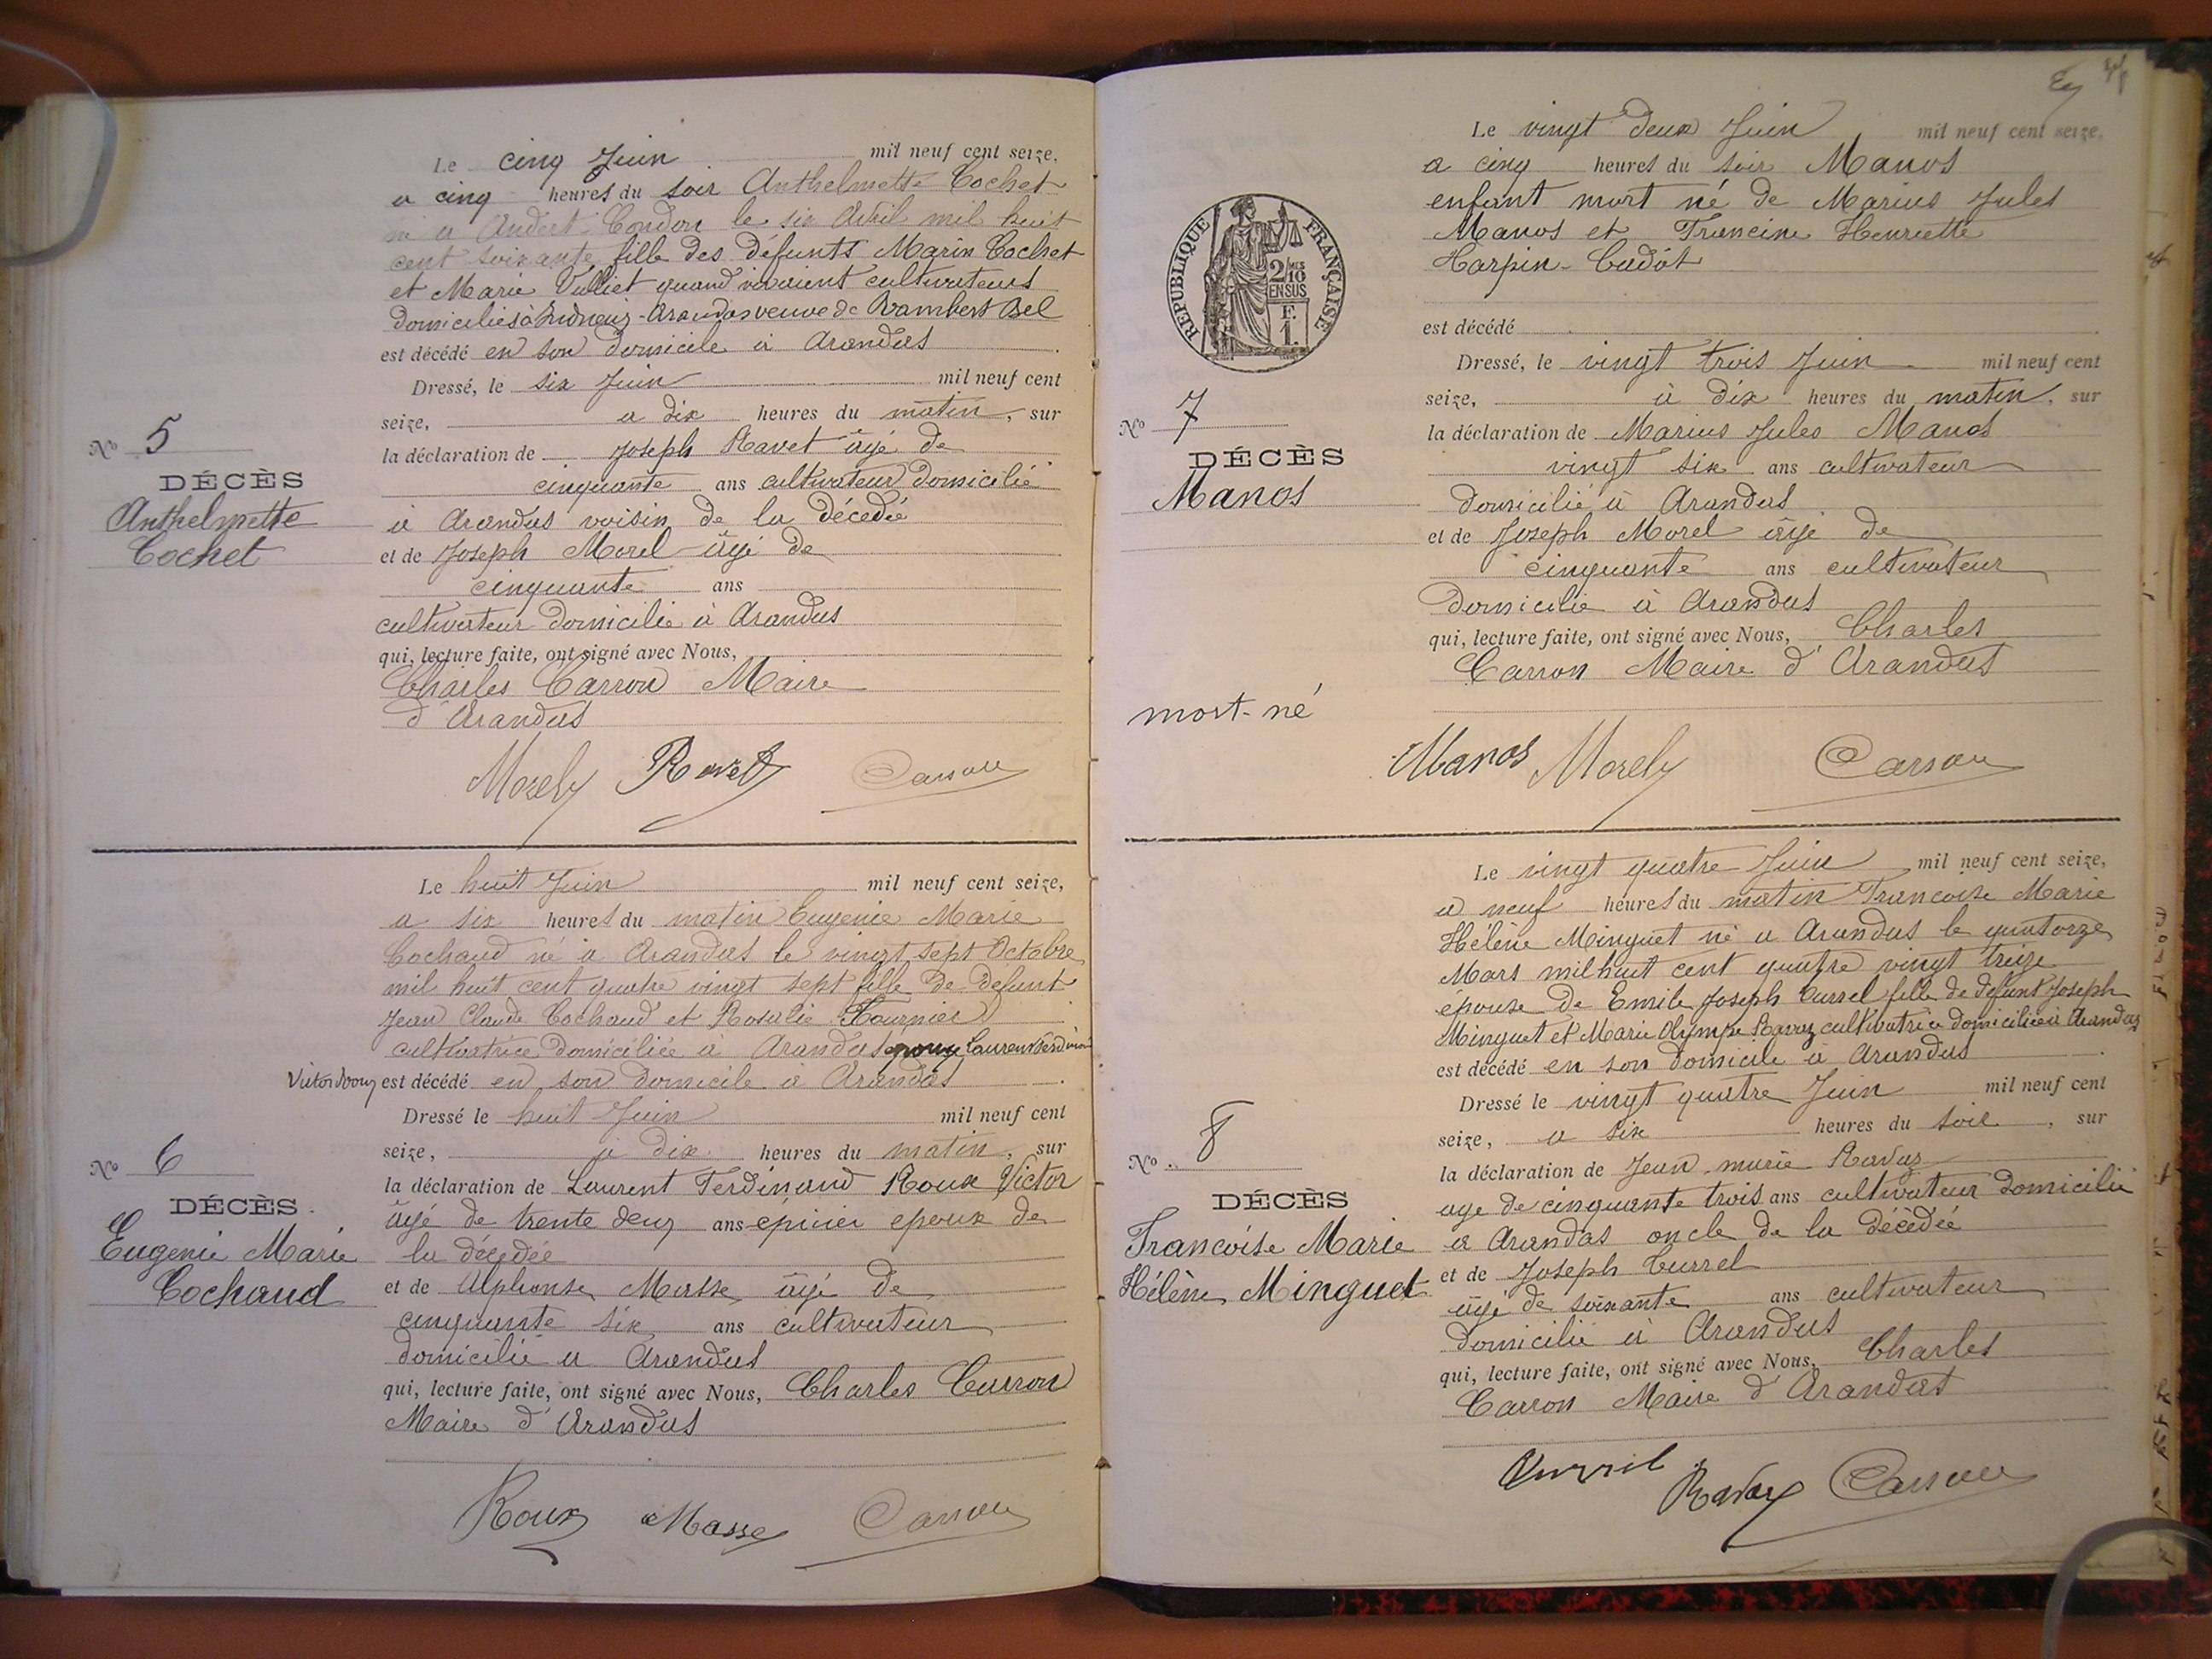 Le cinq Juin mil neuf cent seize,
a cinq heures du soir Anthelmette Cochet
né a Andert-Condon le six Avril mil huit
cent soixante fille des défunts Marin Cochet
et Marie Vulliet quand vivaient cultivateurs
domiciliés à Arandas veuve de Rambert Bel
est décédé en son domicile à Arandas
Dressé, le six Juin mil neuf cent
seize, a dix heures du matin, sur
la déclaration de Joseph Ravet âgé de
cinquante ans cultivateur domicilié
à Arandas voisin de la décédée
et de Joseph Morel âgé de
cinquante ans
cultivateur domicilié à Arandas
qui, lecture faite, ont signé avec Nous,
Charles Carron Maire
d'Arandas
Morel Ravet Carron
No 5
DÉCÈS
Anthelmette
Cochet
Le huit Juin mil neuf cent seize,
a six heures du matin Eugenie Marie
Cochaud né à Arandas le vingt sept Octobre
mil huit cent quatre vingt sept fille de défunt
Jean Claude Cochaud et Rosalie Fournier
cultivatrice domiciliée à Arandas épouse Laurent Ferdinand
Victor Roux est décédé en son domicile à Arandas
Dressé le huit Juin mil neuf cent
seize, à dix heures du matin, sur
la déclaration de Laurent Ferdinand Roux Victor
âgé de trente deux ans épicier epoux de
la décédée
et de Alphonse Masse âgé de
cinquante six ans cultivateur
domicilié a Arandas
qui, lecture faite, ont signé avec Nous, Charles Carron
Maire d'Arandas
Roux Masse Carron
No 6
DÉCÈS.
Eugenie Marie
Cochaud
Le vingt deux Juin mil neuf cent seize,
a cinq heures du soir Manos
enfant mort né de Marius Jules
Manos et Francine Henriette
Harpin-Cadot
est décédé
Dressé, le vingt trois Juin mil neuf cent
seize, à dix heures du matin, sur
la déclaration de Marius Jules Manos
vingt six ans cultivateur
domicilié à Arandas
et de Joseph Morel âgé de
cinquante ans cultivateur
domicilié à Arandas
qui, lecture faite, ont signé avec Nous, Charles
Carron Maire d'Arandas
Manos Morel Carron
RÉPUBLIQUE FRANÇAISE
2/10 MES
EN SUS
F.
1.
No 7
DÉCÈS
Manos
mort-né
Le vingt quatre Juin mil neuf cent seize,
a neuf heures du matin Francoise Marie
Hélène Minguet né a Arandas le quatorze
Mars mil huit cent quatre vingt treize
épouse de Emile Joseph Currel fille de défunt Joseph
Minguet et Marie Olympe Ravaz cultivatrice domiciliée à Arandas
est décédé en son domicile à Arandas
Dressé le vingt quatre Juin mil neuf cent
seize, a six heures du soir, sur
la déclaration de Jean-marie Ravaz
age de cinquante trois ans cultivateur domicilié
a Arandas oncle de la décédée
et de Joseph Currel
âgé de soixante ans cultivateur
domicilié à Arandas
qui, lecture faite, ont signé avec Nous, Charles
Carron Maire d'Arandas
Ravaz Carron
No 8
DÉCÈS
Francoise Marie
Hélène Minguet